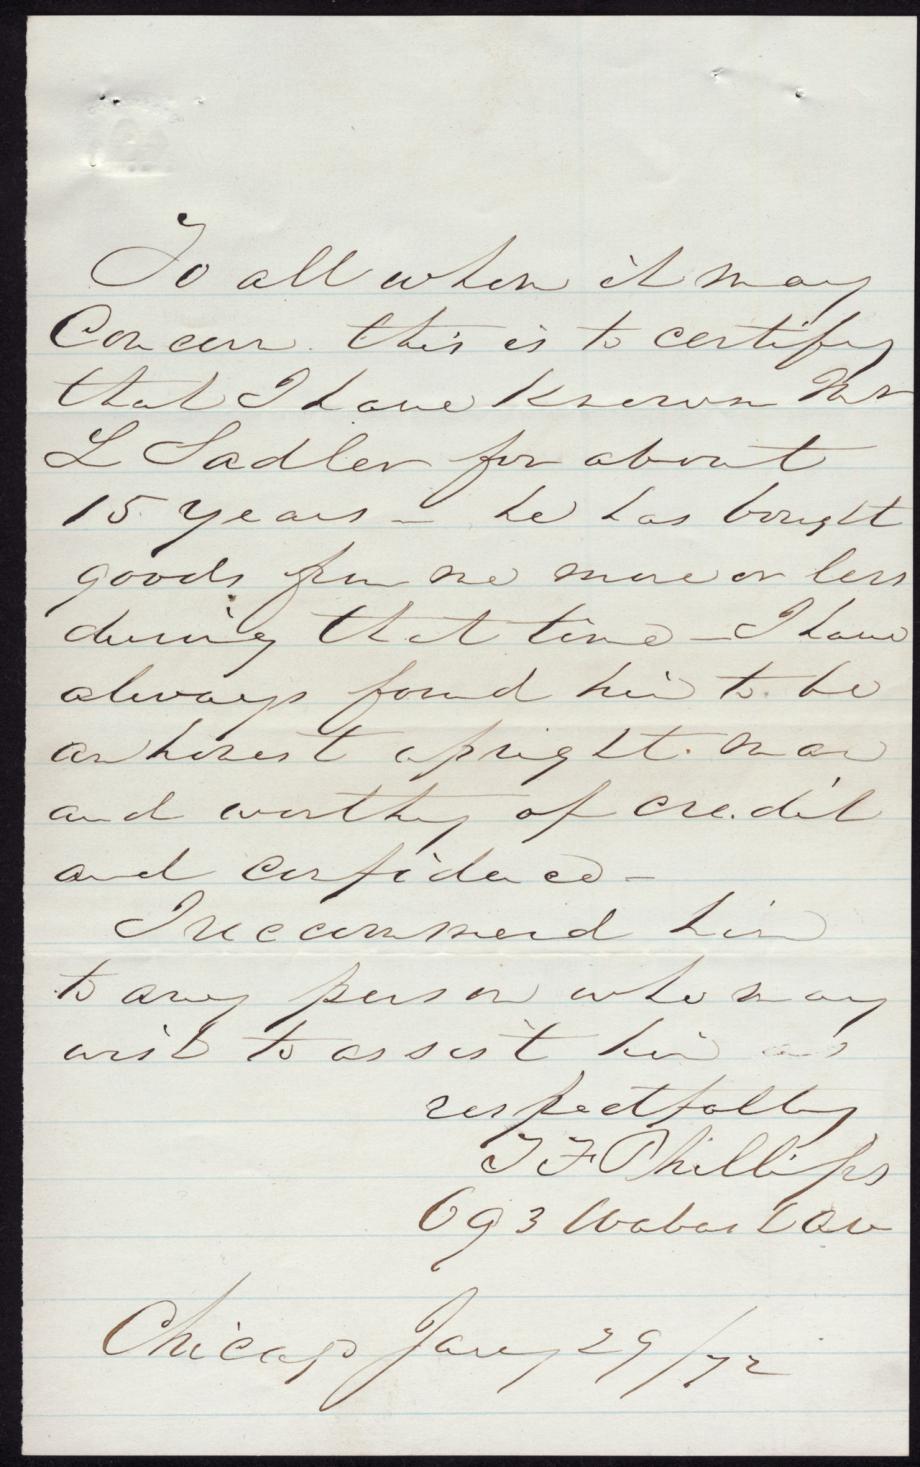 To all whom it may
Concern. this is to certify
that I have known Mr
L Sadler for about
15 years - he has bought
goods from me more or less
during that time - I have
always found him to be
an honest upright man
and worthy of credit
and confidence -
I reccommend him
to any person who may
wish to assist him
respectfully
T F Phillips
693 Wabash Av
Chicago Jany 29/72